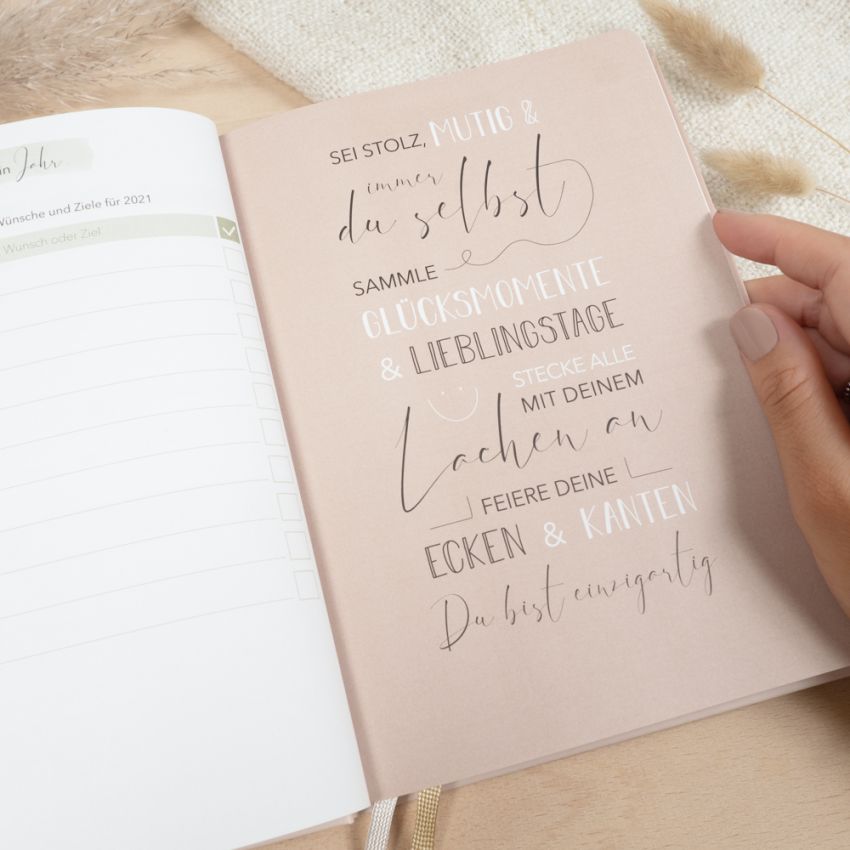 Jahr
Wünsche und Ziele für 2021
Wunsch oder Ziel
SEI STOLZ, MUTIG &
immer
du selbst
SAMMLE
GLÜCKSMOMENTE
& LIEBLINGSTAGE
STECKE ALLE
MIT DEINEM
Lachen an
FEIERE DEINE
ECKEN & KANTEN
Du bist einzigartig